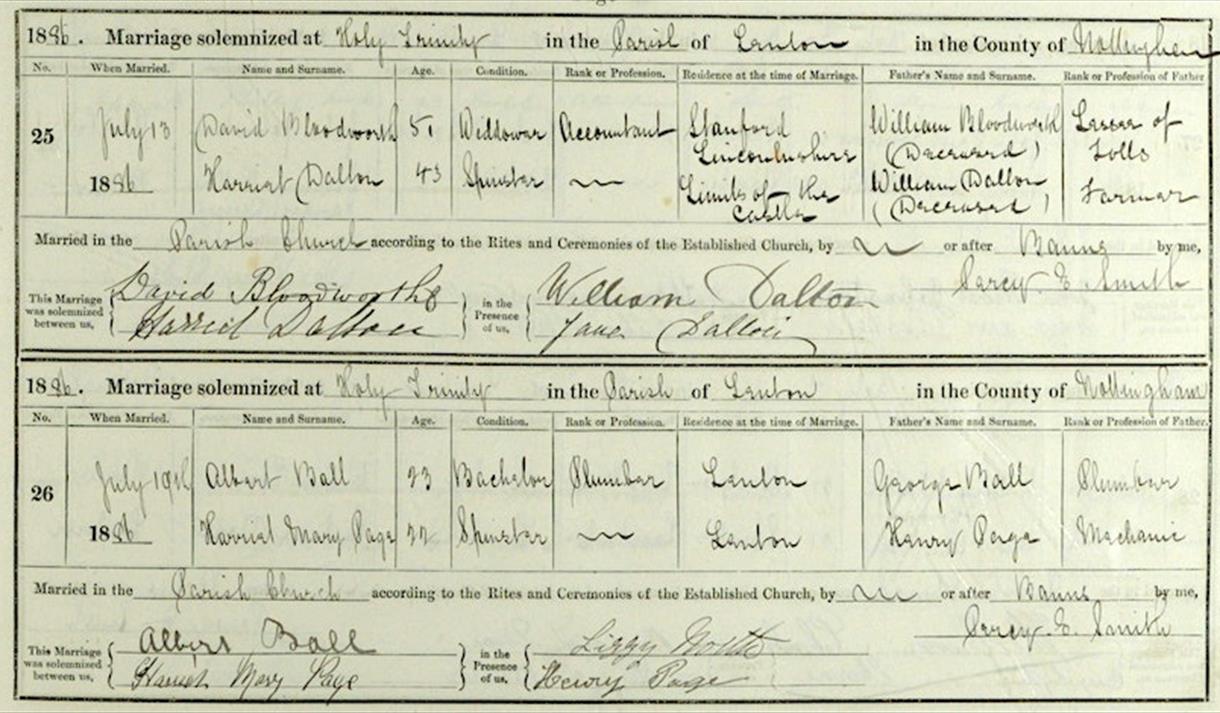 1886. Marriage solemnized at Holy Trinity in the Parish of Lenton in the County of Nottingham
No. When Married. Name and Surname. Age. Condition. Rank or Profession. Residence at the time of Marriage. Father's Name and Surname. Rank or Profession of Father
25 July 13 David Bloodworth 51 Widdower Accountant Stanford Lincolnshire William Bloodworth (Deceased) Lessee of Tolls
1886 Harriet Dalton 43 Spinster Limits of the Castle William Dalton (Deceased) Farmer
Married in the Parish Church according to the Rites and Ceremonies of the Established Church, by or after Banns by me,
Percy. E. Smith
This Marriage was solemnized between us, David Bloodworth in the Presence of us, William Dalton
Harriet Dalton Jane Dalton
1886. Marriage solemnized at Holy Trinity in the Parish of Lenton in the County of Nottingham
No. When Married. Name and Surname. Age. Condition. Rank or Profession. Residence at the time of Marriage. Father's Name and Surname. Rank or Profession of Father.
26 July 19th Albert Ball 23 Bachelor Plumber Lenton George Ball Plumber
1886 Harriet Mary Page 22 Spinster Lenton Henry Page Mechanic
Married in the Parish Church according to the Rites and Ceremonies of the Established Church, by or after Banns by me,
Percy. E. Smith
This Marriage was solemnized between us, Albert Ball in the Presence of us, Lizzy
Harriet Mary Page Henry Page